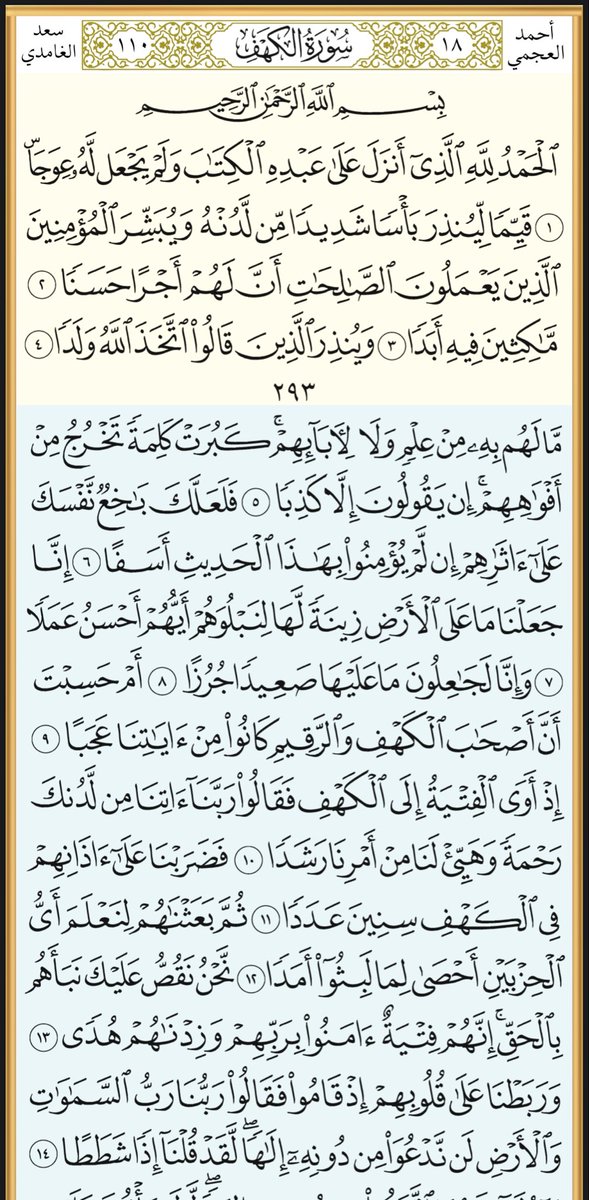 أحمد العجمي
١٨
سُورَةُ الكَهْفِ
١١٠
سعد الغامدي
بِسْمِ ٱللَّهِ ٱلرَّحْمَٰنِ ٱلرَّحِيمِ
ٱلْحَمْدُ لِلَّهِ ٱلَّذِىٓ أَنزَلَ عَلَىٰ عَبْدِهِ ٱلْكِتَٰبَ وَلَمْ يَجْعَل لَّهُۥ عِوَجَاۜ
١ قَيِّمًا لِّيُنذِرَ بَأْسًا شَدِيدًا مِّن لَّدُنْهُ وَيُبَشِّرَ ٱلْمُؤْمِنِينَ
ٱلَّذِينَ يَعْمَلُونَ ٱلصَّٰلِحَٰتِ أَنَّ لَهُمْ أَجْرًا حَسَنًا ٢
مَّٰكِثِينَ فِيهِ أَبَدًا ٣ وَيُنذِرَ ٱلَّذِينَ قَالُوا۟ ٱتَّخَذَ ٱللَّهُ وَلَدًا ٤
٢٩٣
مَّا لَهُم بِهِۦ مِنْ عِلْمٍ وَلَا لِـَٔابَآئِهِمْ ۚ كَبُرَتْ كَلِمَةً تَخْرُجُ مِنْ
أَفْوَٰهِهِمْ ۚ إِن يَقُولُونَ إِلَّا كَذِبًا ٥ فَلَعَلَّكَ بَٰخِعٌ نَّفْسَكَ
عَلَىٰٓ ءَاثَٰرِهِمْ إِن لَّمْ يُؤْمِنُوا۟ بِهَٰذَا ٱلْحَدِيثِ أَسَفًا ٦ إِنَّا
جَعَلْنَا مَا عَلَى ٱلْأَرْضِ زِينَةً لَّهَا لِنَبْلُوَهُمْ أَيُّهُمْ أَحْسَنُ عَمَلًا
٧ وَإِنَّا لَجَٰعِلُونَ مَا عَلَيْهَا صَعِيدًا جُرُزًا ٨ أَمْ حَسِبْتَ
أَنَّ أَصْحَٰبَ ٱلْكَهْفِ وَٱلرَّقِيمِ كَانُوا۟ مِنْ ءَايَٰتِنَا عَجَبًا ٩
إِذْ أَوَى ٱلْفِتْيَةُ إِلَى ٱلْكَهْفِ فَقَالُوا۟ رَبَّنَآ ءَاتِنَا مِن لَّدُنكَ
رَحْمَةً وَهَيِّئْ لَنَا مِنْ أَمْرِنَا رَشَدًا ١٠ فَضَرَبْنَا عَلَىٰٓ ءَاذَانِهِمْ
فِى ٱلْكَهْفِ سِنِينَ عَدَدًا ١١ ثُمَّ بَعَثْنَٰهُمْ لِنَعْلَمَ أَىُّ
ٱلْحِزْبَيْنِ أَحْصَىٰ لِمَا لَبِثُوٓا۟ أَمَدًا ١٢ نَّحْنُ نَقُصُّ عَلَيْكَ نَبَأَهُم
بِٱلْحَقِّ ۚ إِنَّهُمْ فِتْيَةٌ ءَامَنُوا۟ بِرَبِّهِمْ وَزِدْنَٰهُمْ هُدًى ١٣
وَرَبَطْنَا عَلَىٰ قُلُوبِهِمْ إِذْ قَامُوا۟ فَقَالُوا۟ رَبُّنَا رَبُّ ٱلسَّمَٰوَٰتِ
وَٱلْأَرْضِ لَن نَّدْعُوَا۟ مِن دُونِهِۦٓ إِلَٰهًا ۖ لَّقَدْ قُلْنَآ إِذًا شَطَطًا ١٤